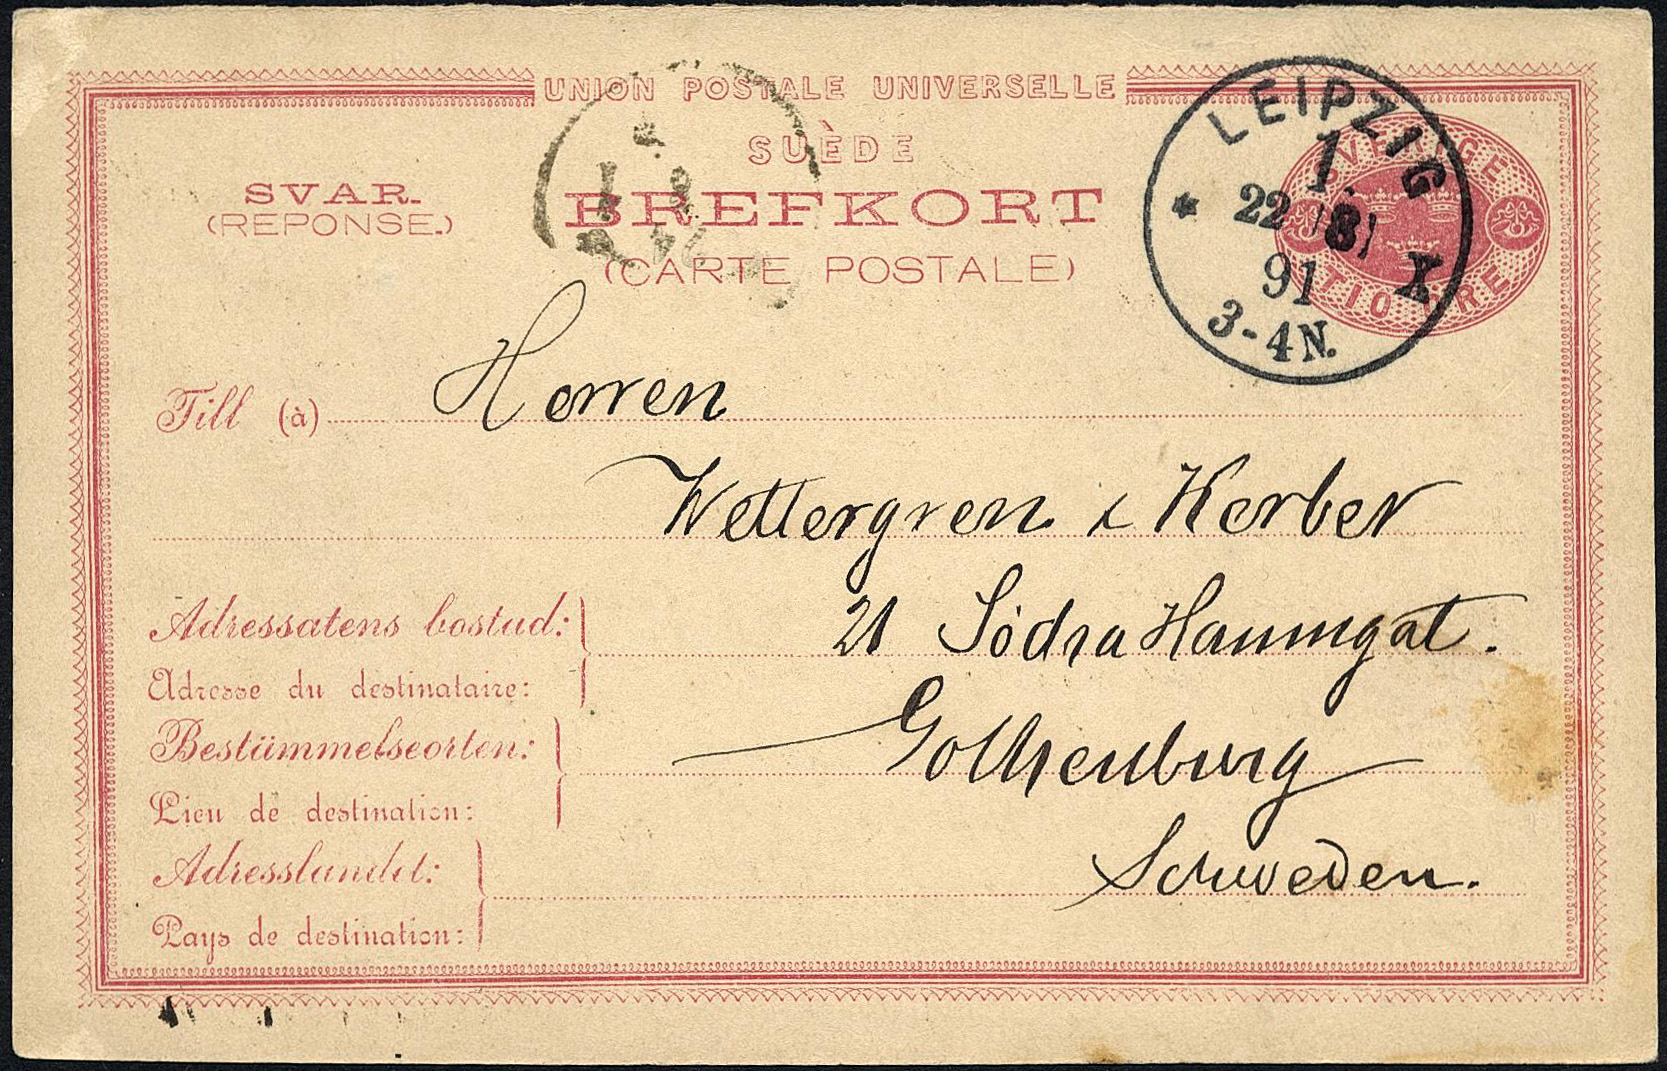 UNION POSTALE UNIVERSELLE
SUÈDE
SVAR.
(REPONSE.)
BREFKORT
(CARTE POSTALE)
LEIPZIG
1.
22 8
91 X
3-4N.
SVERIGE
TIO ÖRE
Till (à) Herren
Wettergren & Kerber
Adressatens bostad: 21 Södra Hamngat.
Adresse du destinataire:
Bestämmelseorten: Gothenburg
Lieu de destination:
Adresslandet: Schweden.
Pays de destination: